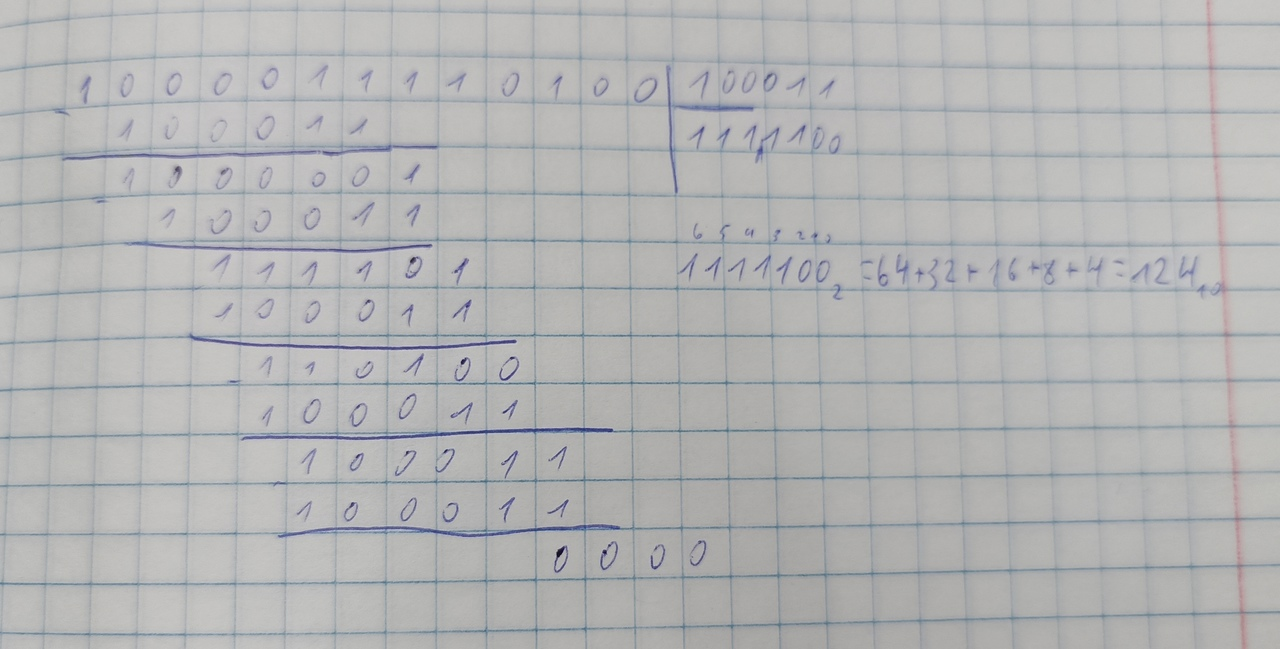 1000011110100 100011
100011 1111100
1000001
100011
111101
100011
110100
100011
100011
100011
0000
6 5 4 3 2 1 0
1111100₂ = 64+32+16+8+4=124₁₀